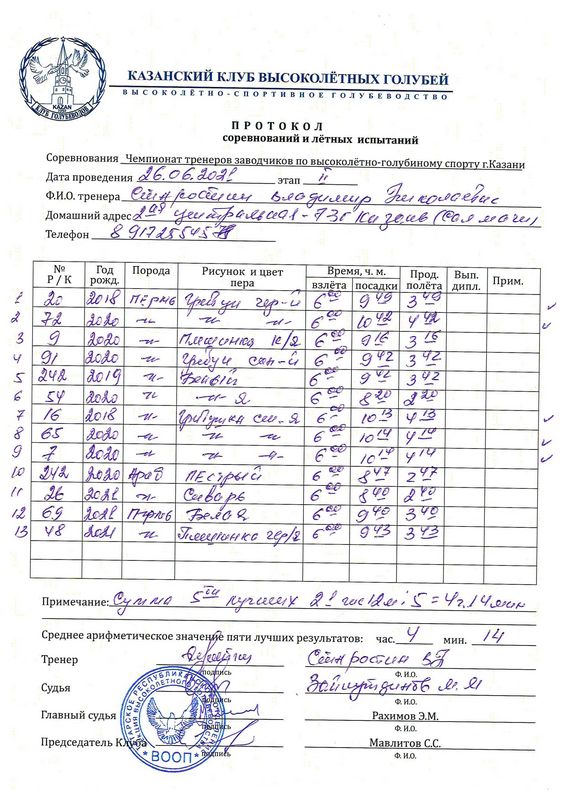 KAZAN
КЛУБ ГОЛУБЕВОДОВ
КАЗАНСКИЙ КЛУБ ВЫСОКОЛЁТНЫХ ГОЛУБЕЙ
ВЫСОКОЛЁТНО-СПОРТИВНОЕ ГОЛУБЕВОДСТВО
ПРОТОКОЛ
соревнований и лётных испытаний
Соревнования Чемпионат тренеров заводчиков по высоколётно-голубиному спорту г.Казани
Дата проведения 26.06.2021 этап II
Ф.И.О. тренера Старостин Владимир Николаевич
Домашний адрес 2ая центральная-73г Казань (Салмачи)
Телефон
№ Р / К Год рожд. Порода Рисунок и цвет пера Время, ч. м. взлёта посадки Прод. полёта Вып. дипл. Прим.
1 20 2018 Пермь Гривун чер-й 6 00 9 49 3 49
2 72 2020 -"- -"- -"- 6 00 10 42 4 42
3 9 2020 -"- Плешинка 6 00 9 16 3 16
4 91 2020 -"- Гривун син-й 6 00 9 42 3 42
5 242 2019 -"- Белый 6 00 9 42 3 42
6 54 2020 -"- -"- я 6 00 8 20 2 20
7 16 2018 -"- Гривушка син-я 6 00 10 13 4 13
8 65 2020 -"- -"- -"- 6 00 10 14 4 14
9 7 2020 -"- -"- -"- 6 00 10 14 4 14
10 242 2020 Араб Пестрый 6 00 8 47 2 47
11 26 2021 -"- Сизарь 6 00 8 40 2 40
12 69 2021 Пермь Белая 6 00 9 40 3 40
13 48 2021 -"- Плешинка чер/я 6 00 9 43 3 43
Примечание: Сумма 5ти лучших 21 час 12м : 5 = 4ч.14мин
Среднее арифметическое значение пяти лучших результатов: час. 4 мин. 14
Тренер Старостин
подпись Ф.И.О.
Судья М.М
подпись Ф.И.О.
Главный судья Рахимов Э.М.
подпись Ф.И.О.
Председатель Клуба Мавлитов С.С.
подпись Ф.И.О.
ВООП